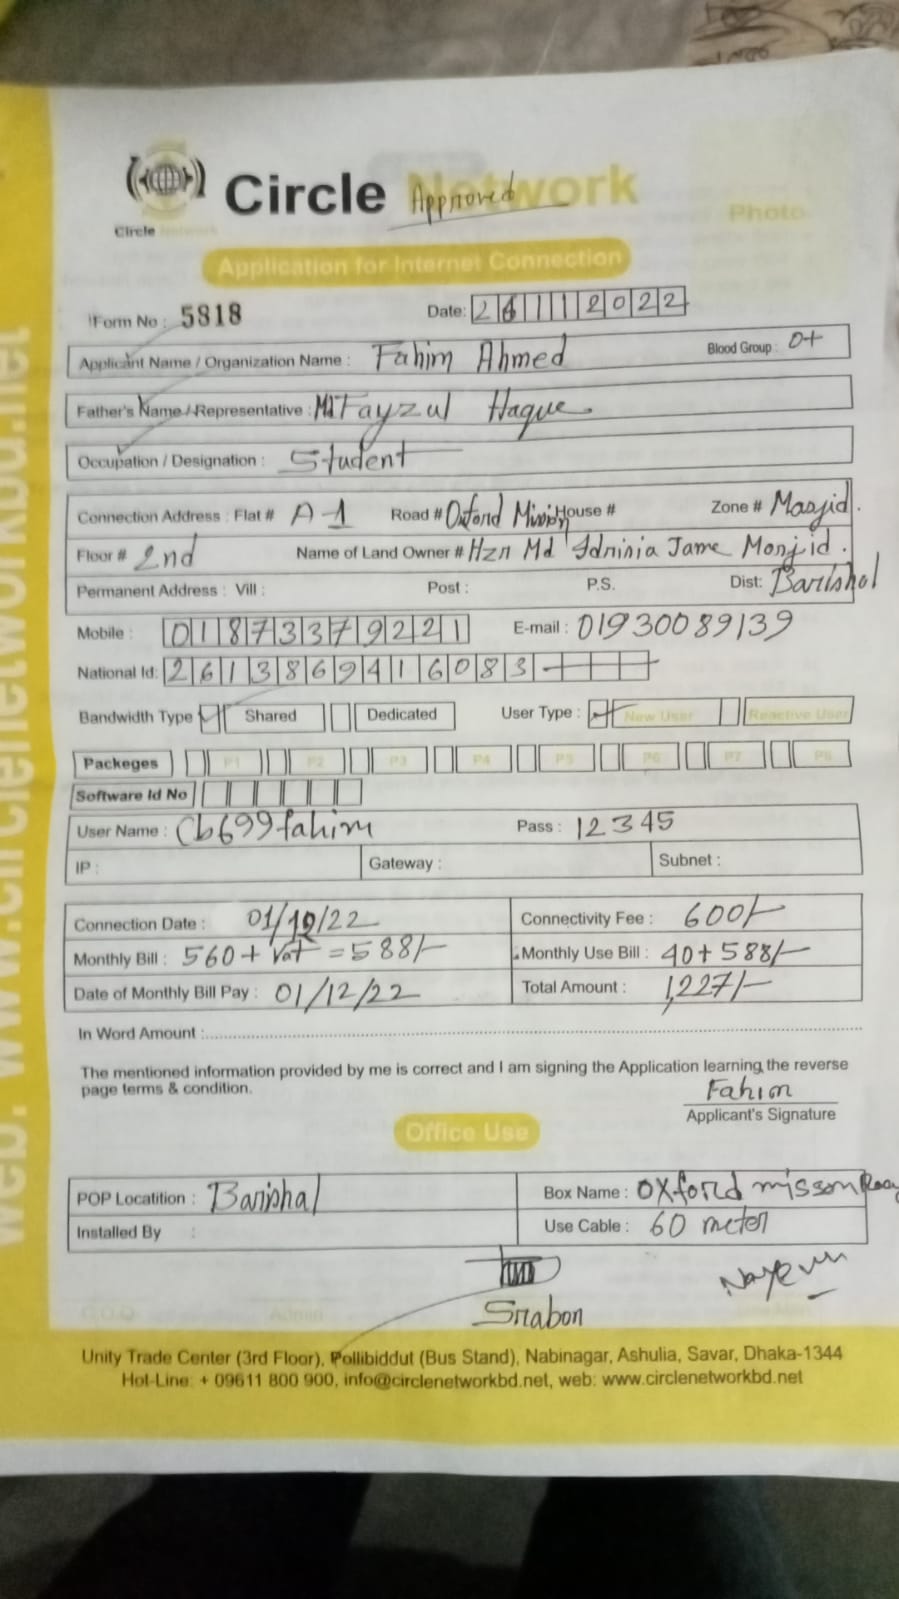 Circle Network
Approved
Circle Network
Photo
Application for Internet Connection
Form No : 5818
Date: 26112022
Applicant Name / Organization Name : Fahim Ahmed Blood Group : O+
Father's Name / Representative : Md Fayzul Haque.
Occupation / Designation : Student
Connection Address : Flat # A-1 Road # Oxford Mission House # Zone # Masjid.
Floor # 2nd Name of Land Owner # Md Jame
Permanent Address : Vill : Post : P.S. Dist: Barishal
Mobile : 01873379221 E-mail : 01930089139
National Id: 2613869416083
Bandwidth Type Shared Dedicated User Type : New User Reactive User
Packeges P1 P2 P3 P4 P5 P6 P7 P8
Software Id No
User Name : Cb699fahim Pass : 12345
IP : Gateway : Subnet :
Connection Date : 01/12/22 Connectivity Fee : 600/-
Monthly Bill : 560 + Vat = 588/- Monthly Use Bill : 40+588/-
Date of Monthly Bill Pay : 01/12/22 Total Amount : 1,227/-
In Word Amount :
The mentioned information provided by me is correct and I am signing the Application learning the reverse
page terms & condition.
Fahim
Applicant's Signature
Office Use
POP Locatition : Barishal Box Name : Oxford misson Road
Installed By : Use Cable : 60 meter
Srabon
Nayeem
C.O.O Admin
Unity Trade Center (3rd Floor), Pollibiddut (Bus Stand), Nabinagar, Ashulia, Savar, Dhaka-1344
Hot-Line: + 09611 800 900, info@circlenetworkbd.net, web: www.circlenetworkbd.net
web: www.circlenetworkbd.net